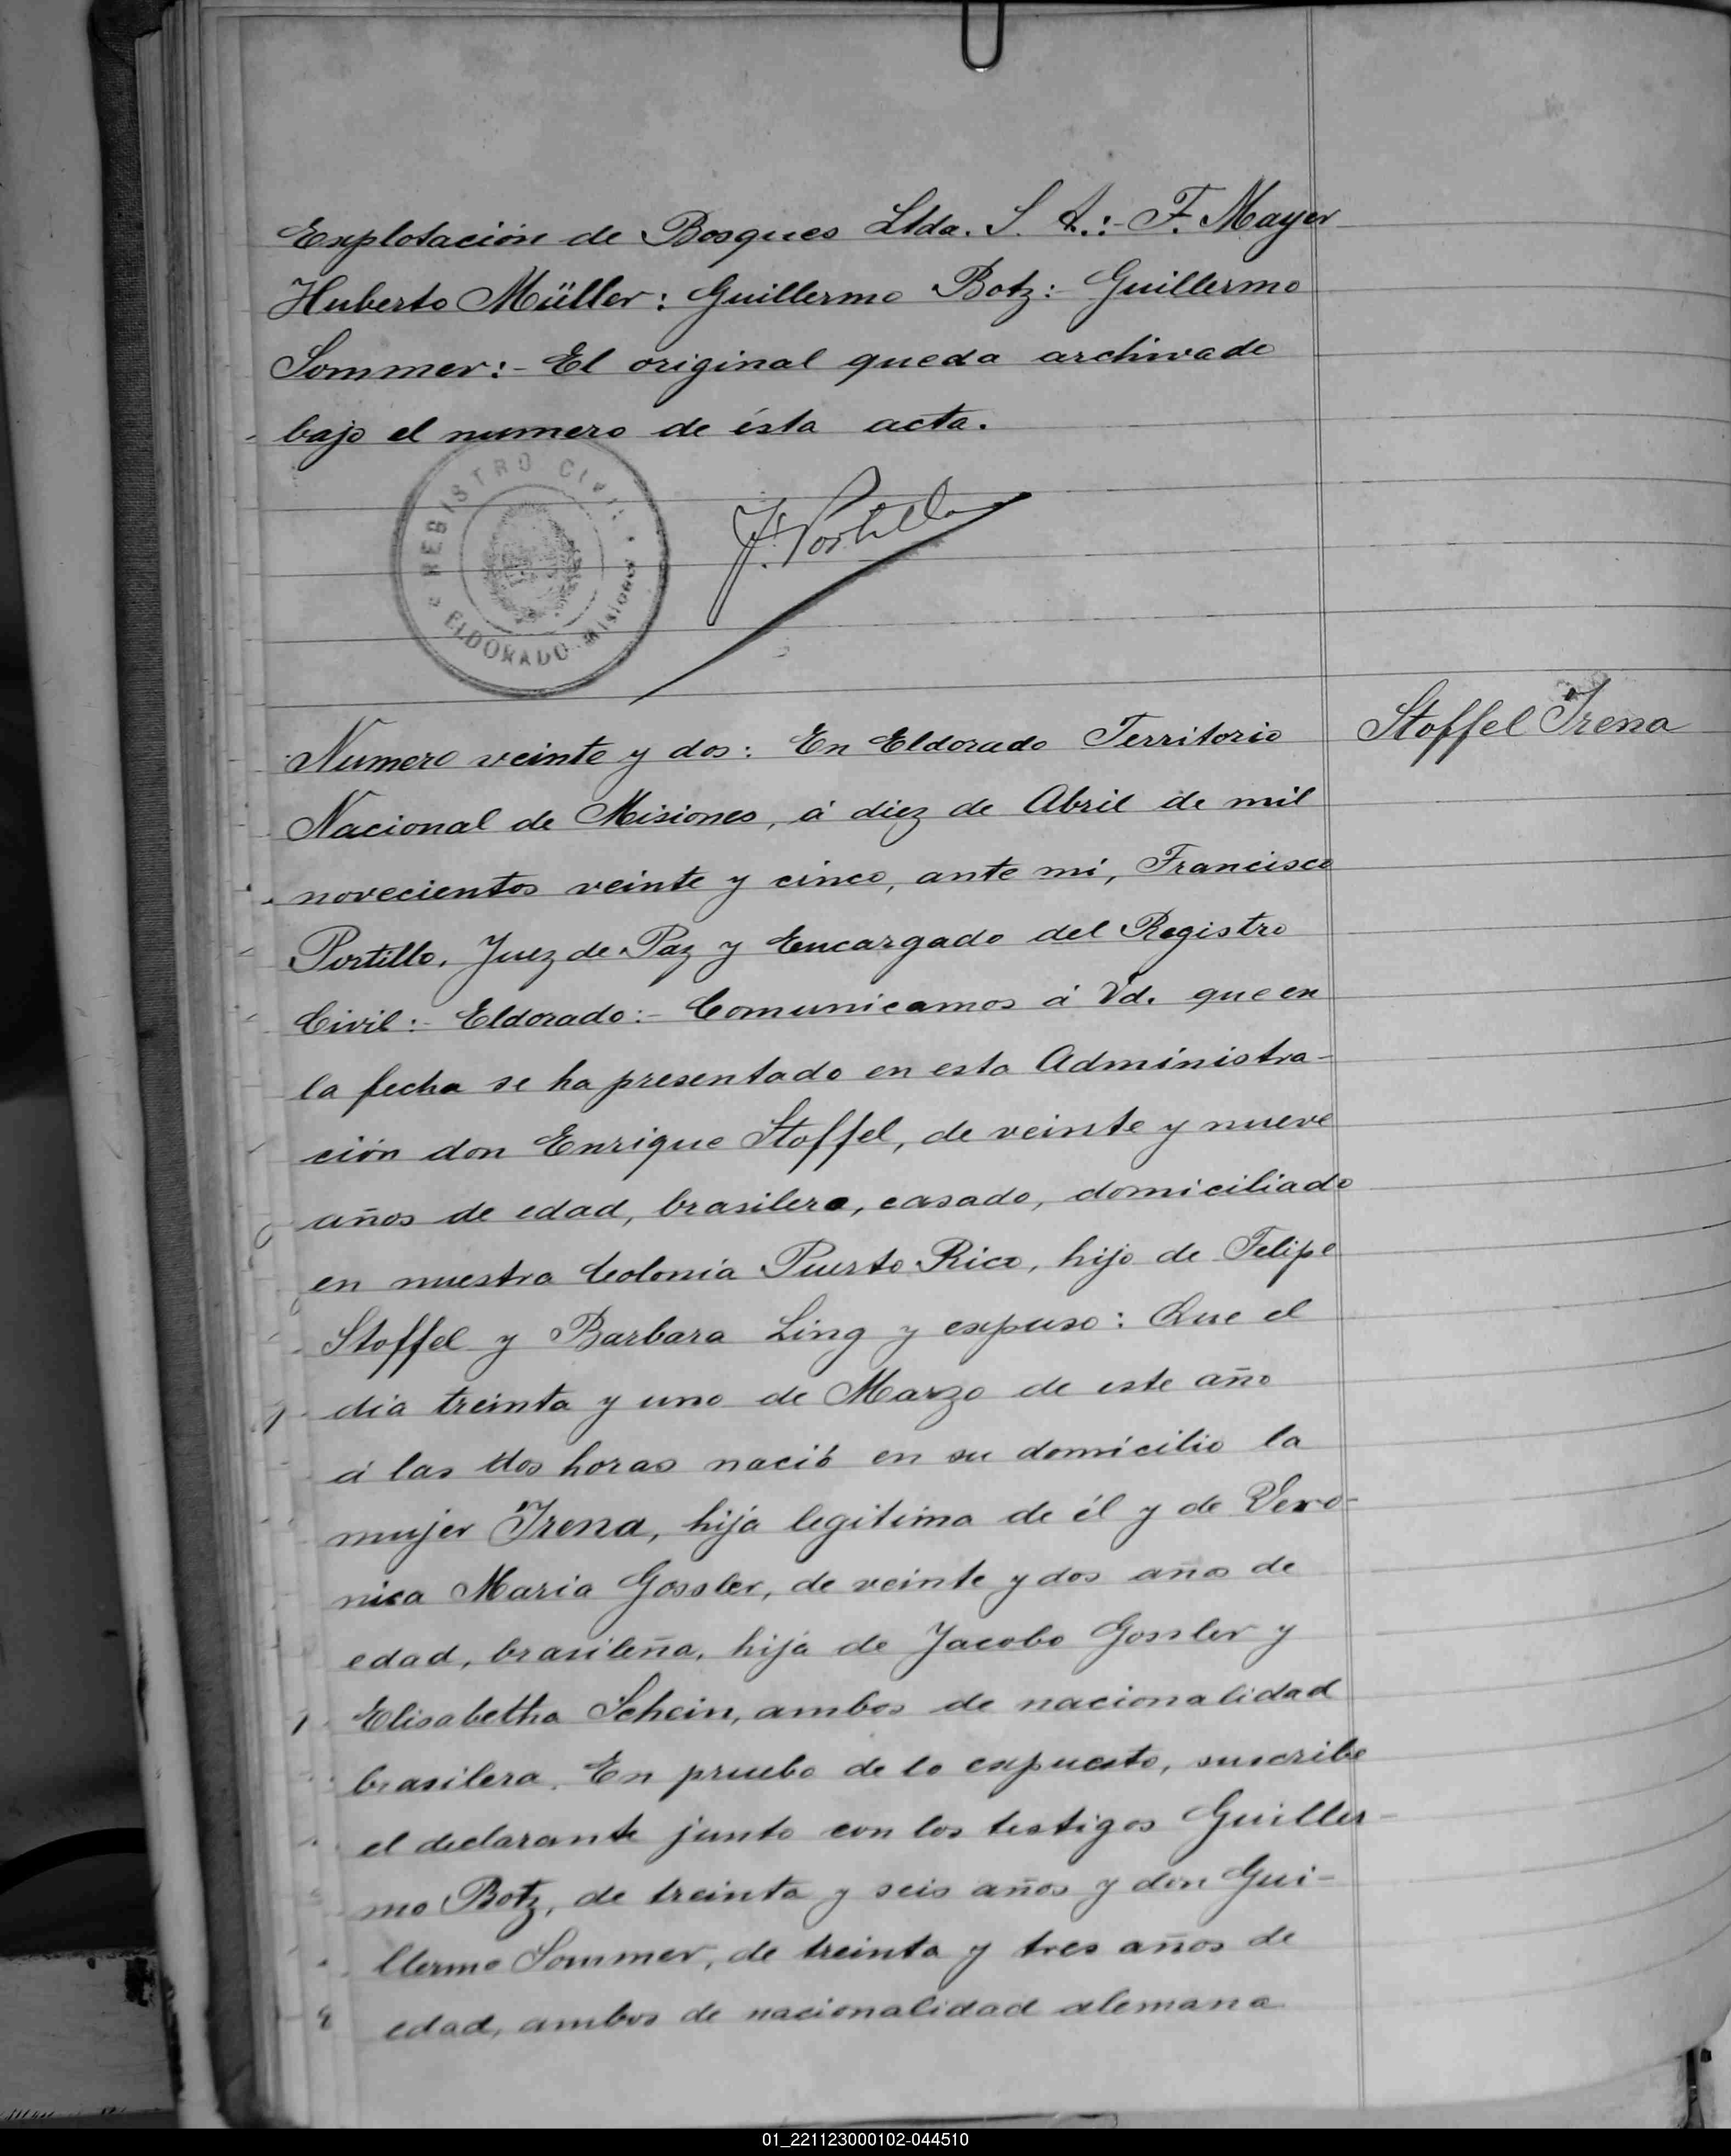 Explotación de Bosques Ltda. S. A.:- F. Mayer
Huberto Müller: Guillermo Botz:- Guillermo
Sommer:- El original queda archivado
bajo el numero de ésta acta.
REGISTRO CIVIL
ELDORADO Misiones
F. Portillo
Numero veinte y dos: En Eldorado Territorio
Stoffel Irena
Nacional de Misiones, á diez de Abril de mil
novecientos veinte y cinco, ante mí, Francisco
Portillo, Juez de Paz y Encargado del Registro
Civil:- Eldorado:- Comunicamos á Vd. que en
la fecha se ha presentado en esta Administra-
ción don Enrique Stoffel, de veinte y nueve
años de edad, brasilero, casado, domiciliado
en nuestra Colonia Puerto Rico, hijo de Felipe
Stoffel y Barbara Ling y expuso: Que el
día treinta y uno de Marzo de este año
á las dos horas nació en su domicilio la
mujer Irena, hija legítima de él y de Vero-
nica Maria Gossler, de veinte y dos años de
edad, brasileña, hija de Jacobo Gossler y
Elisabetha Schein, ambos de nacionalidad
brasilera. En prueba de lo expuesto, suscribe
el declarante junto con los testigos Guiller-
mo Botz, de treinta y seis años y don Gui-
llermo Sommer, de treinta y tres años de
edad, ambos de nacionalidad alemana
01_221123000102-044510